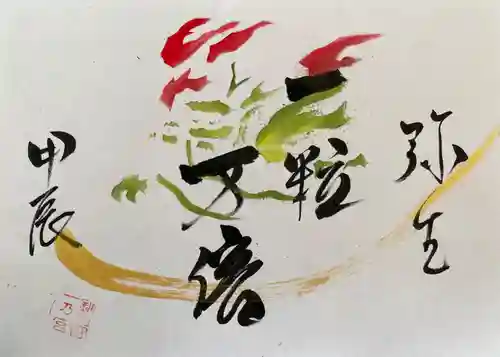 弥生
一粒
万倍
甲辰